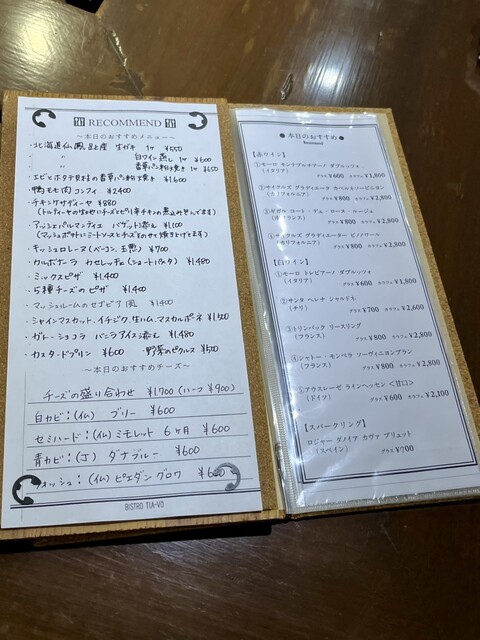 RECOMMEND
～本日のおすすめメニュー～
・北海道仙鳳趾産 生ガキ 1ケ ¥550
〃 白ワイン蒸し 1ケ ¥600
〃 香草パン粉焼き 1ケ ¥650
・エビとホタテ貝柱の香草パン粉焼き ¥1,600
・鴨モモ肉コンフィ ¥2,400
・チキンケサディーヤ ¥880
・アッシェパルマンティエ バゲット添え ¥1,100
(マッシュポテトにミートソースとチーズをのせ焼き上げてます)
・キッシュロレーヌ(ベーコン、玉葱) ¥700
・カルボナーラ カセレッチェ(ショートパスタ) ¥1,480
・ミックスピザ ¥1,400
・5種チーズのピザ ¥1,400
・マッシュルームのセゴビア風 ¥1,400
・シャインマスカット、イチジク、生ハム、マスカルポーネ ¥1,520
・ガトーショコラ バニラアイス添え ¥1,480
・カスタードプリン ¥600 ・野菜のピクルス ¥500
～本日のおすすめチーズ～
チーズの盛り合わせ ¥1,700 (ハーフ ¥900)
白カビ：(仏) ブリー ¥600
セミハード：(仏) ミモレット 6ヶ月 ¥600
青カビ：(丁) ダナブルー ¥600
ウォッシュ：(仏) ピエダングロワ ¥600
BISTRO TIA-VO
● 本日のおすすめ ●
【赤ワイン】
①モーロ モンテプルチアーノ ダブルッツォ
(イタリア)
グラス ¥600 カラフェ ¥1,800
(カリフォルニア)
グラス ¥800 カラフェ ¥2,800
③ドガル コート・デュ・ローヌ・ルージュ
(フランス)
グラス ¥800 カラフェ ¥2,800
(カリフォルニア)
グラス ¥800 カラフェ ¥2,800
【白ワイン】
①モーロ トレビアーノ ダブルッツォ
(イタリア)
グラス ¥600 カラフェ ¥1,800
②サンタ ヘレナ シャルドネ
(チリ)
グラス ¥700 カラフェ ¥2,600
③トリンバック リースリング
(フランス)
グラス ¥800 カラフェ ¥2,800
④シャトー・モンペラ ソーヴィニヨンブラン
(フランス)
グラス ¥800 カラフェ ¥2,800
⑤アウスレーゼ ラインヘッセン ＜甘口＞
(ドイツ)
グラス ¥600 カラフェ ¥2,100
【スパークリング】
ロジャー グノイア カヴァ ブリュット
(スペイン)
グラス ¥700